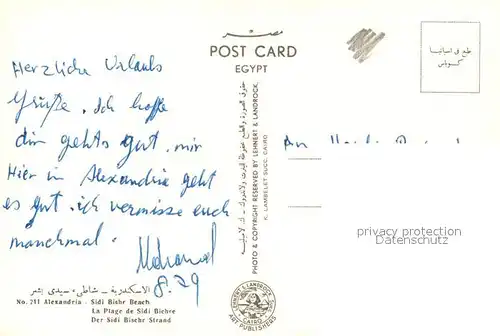 مصر
POST CARD
EGYPT
طبع فى اسبانيا
Herzliche Urlaubs
Grüße. Ich hoffe
dir gehts gut. mir
Hier in Alexandria geht
es gut. ich vermisse euch
manchmal.
Mohamed
8.29
An
PHOTO & COPYRIGHT RESERVED BY LEHNERT & LANDROCK.
K. LAMBELET SUCC. CAIRO
privacy protection
www.ansichtskartenversand.com
الاسكندرية - شاطىء سيدى بشر
No. 211 Alexandria - Sidi Bishr Beach
La Plage de Sidi Bichre
Der Sidi Bischr Strand
LEHNERT & LANDROCK
CAIRO
ART PUBLISHERS